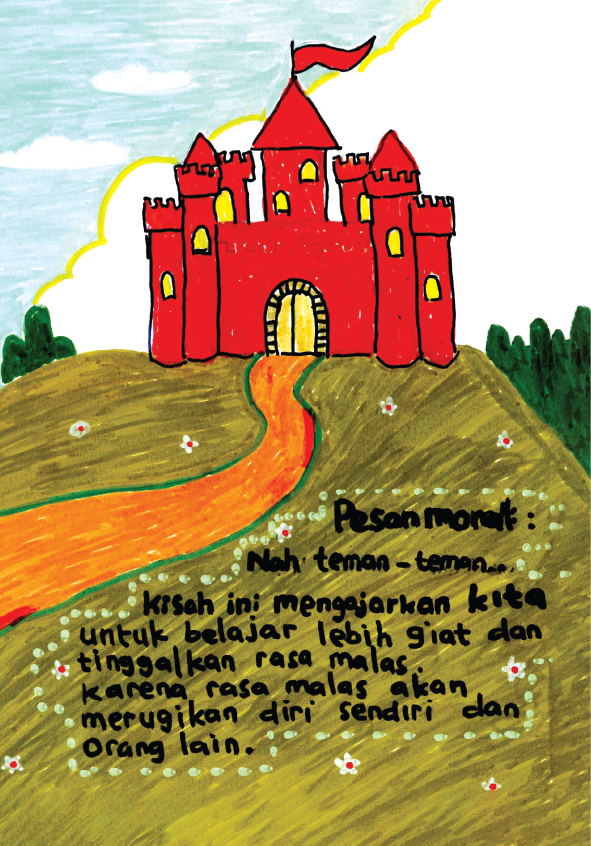 Pesan moral :
Nah teman - teman...
kisah ini mengajarkan kita
untuk belajar lebih giat dan
tinggalkan rasa malas.
karena rasa malas akan
merugikan diri sendiri dan
orang lain.